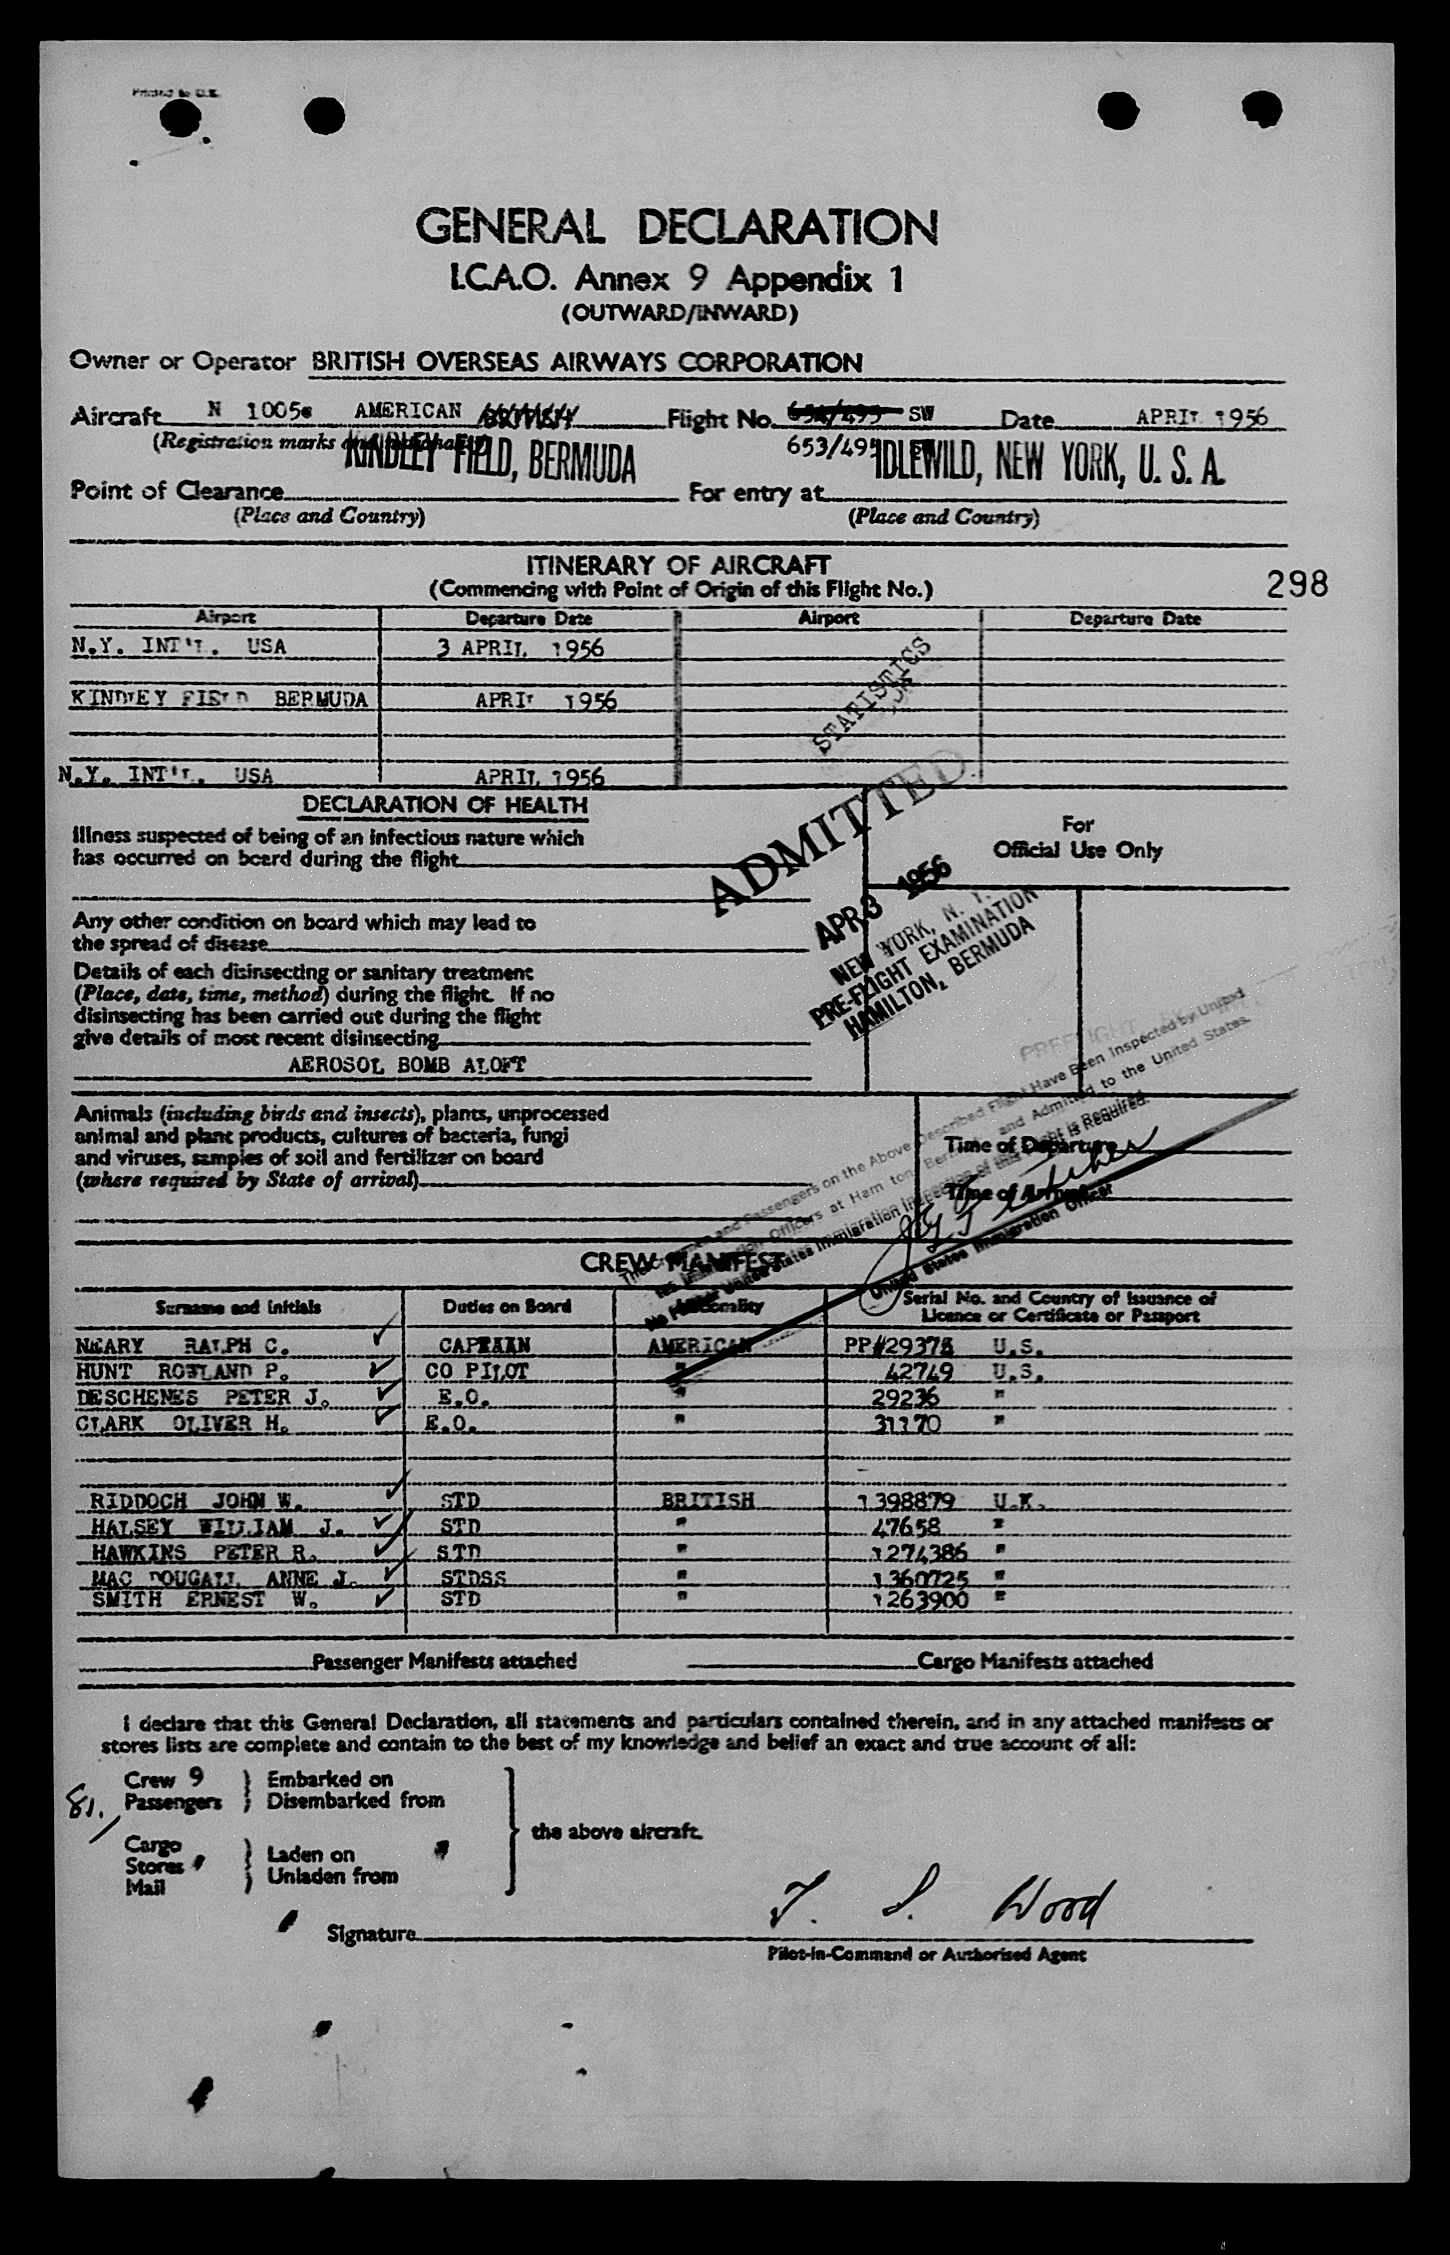 Printed in U.K.
GENERAL DECLARATION
I.C.A.O. Annex 9 Appendix 1
(OUTWARD/INWARD)
Owner or Operator BRITISH OVERSEAS AIRWAYS CORPORATION
Aircraft N 1005 AMERICAN BRITISH Flight No. 654/495 SW Date APRIL 1956
(Registration marks and nationality) 653/495
KINDLEY FIELD, BERMUDA IDLEWILD, NEW YORK, U. S. A.
Point of Clearance For entry at
(Place and Country) (Place and Country)
ITINERARY OF AIRCRAFT
(Commencing with Point of Origin of this Flight No.)
298
Airport Departure Date Airport Departure Date
N.Y. INT'L. USA 3 APRIL 1956
KINDLEY FIELD BERMUDA APRIL 1956
N.Y. INT'L. USA APRIL 1956
STATISTICS
ADMITTED
APR 3 1956
NEW YORK, N. Y.
PRE-FLIGHT EXAMINATION
HAMILTON, BERMUDA
DECLARATION OF HEALTH
Illness suspected of being of an infectious nature which
has occurred on board during the flight
For
Official Use Only
Any other condition on board which may lead to
the spread of disease
Details of each disinsecting or sanitary treatment
(Place, date, time, method) during the flight. If no
disinsecting has been carried out during the flight
give details of most recent disinsecting
AEROSOL BOMB ALOFT
Animals (including birds and insects), plants, unprocessed
animal and plant products, cultures of bacteria, fungi
and viruses, samples of soil and fertilizer on board
(where required by State of arrival)
Time of Departure
Time of Arrival
PREFLIGHT
and Passengers on the Above Described Flight Have Been Inspected by United
Officers at Hamilton, Bermuda and Admitted to the United States.
No Further United States Immigration Inspection of this Flight is Required.
United States Immigration Officer
CREW MANIFEST
Surname and Initials Duties on Board Nationality Serial No. and Country of Issuance of
Licence or Certificate or Passport
NEARY RALPH C. CAPTAIN AMERICAN PP#29375 U.S.
HUNT ROWLAND P. CO PILOT " 42749 U.S.
DESCHENES PETER J. E.O. " 29236 "
CLARK OLIVER H. E.O. " 31170 "
RIDDOCH JOHN W. STD BRITISH 1398879 U.K.
HALSEY WILLIAM J. STD " 47658 "
HAWKINS PETER R. STD " 1274386 "
MAC DOUGALL ANNE J. STDSS " 1360725 "
SMITH ERNEST W. STD " 1263900 "
Passenger Manifests attached Cargo Manifests attached
I declare that this General Declaration, all statements and particulars contained therein, and in any attached manifests or
stores lists are complete and contain to the best of my knowledge and belief an exact and true account of all:
Crew 9 Embarked on
81. Passengers Disembarked from
the above aircraft.
Cargo
Stores Laden on
Mail Unladen from
Signature J. S. Wood
Pilot-in-Command or Authorised Agent